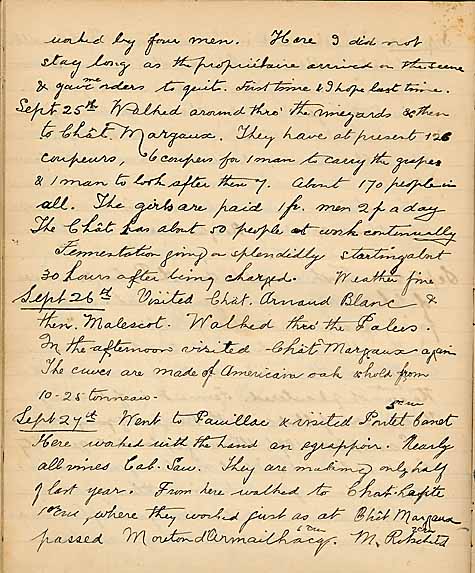 worked by four men. Here I did not
stay long as the propriitaire arrived on the scene
& gave me orders to quit. First time & I hope last time.
Sept 25th Walked around thro' the vineyards & then
to Chât. Margaux. They have at present 126
coupeurs, 6 coupers for 1 man to carry the grapes
& 1 man to look after them 7. About 170 people in
all. The girls are paid 1 fr. men 2 f a day
The Chât has about 50 people at work continually
Fermentation going on splendidly starting about
30 hours after being charged. Weather fine
Sept 26th Visited Chat. Arnaud Blanc &
then Malescot. Walked thro' the Palus.
In the afternoon visited Chât Margaux again
The cuves are made of American oak & hold from
10-25 tonneau.
Sept 27th Went to Pauillac & visited Pontet Canet 5me cru
Here worked with the hand an egrappoir. Nearly
all vines Cab. Sau. They are making only half
of last year. From here walked to Chat. Lafite
1er cru, where they worked just as at Chât Margaux
passed Mouton d'Armailhacq. M. Rotschild